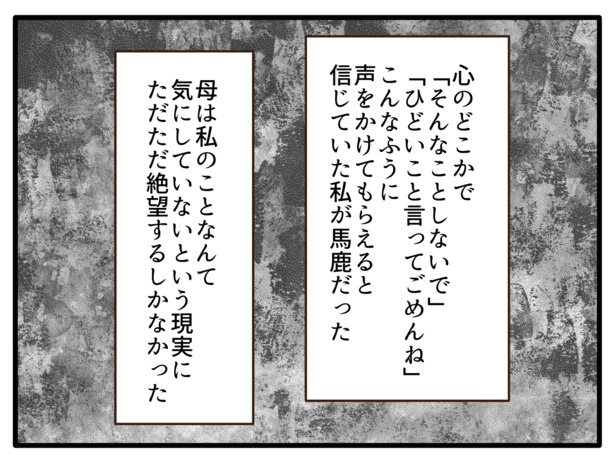 心のどこかで
「そんなことしないで」
「ひどいこと言ってごめんね」
こんなふうに
声をかけてもらえると
信じていた私が馬鹿だった
母は私のことなんて
気にしていないという現実に
ただただ絶望するしかなかった